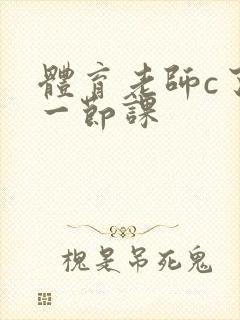 體育老師c了
一節課
槐是吊死鬼